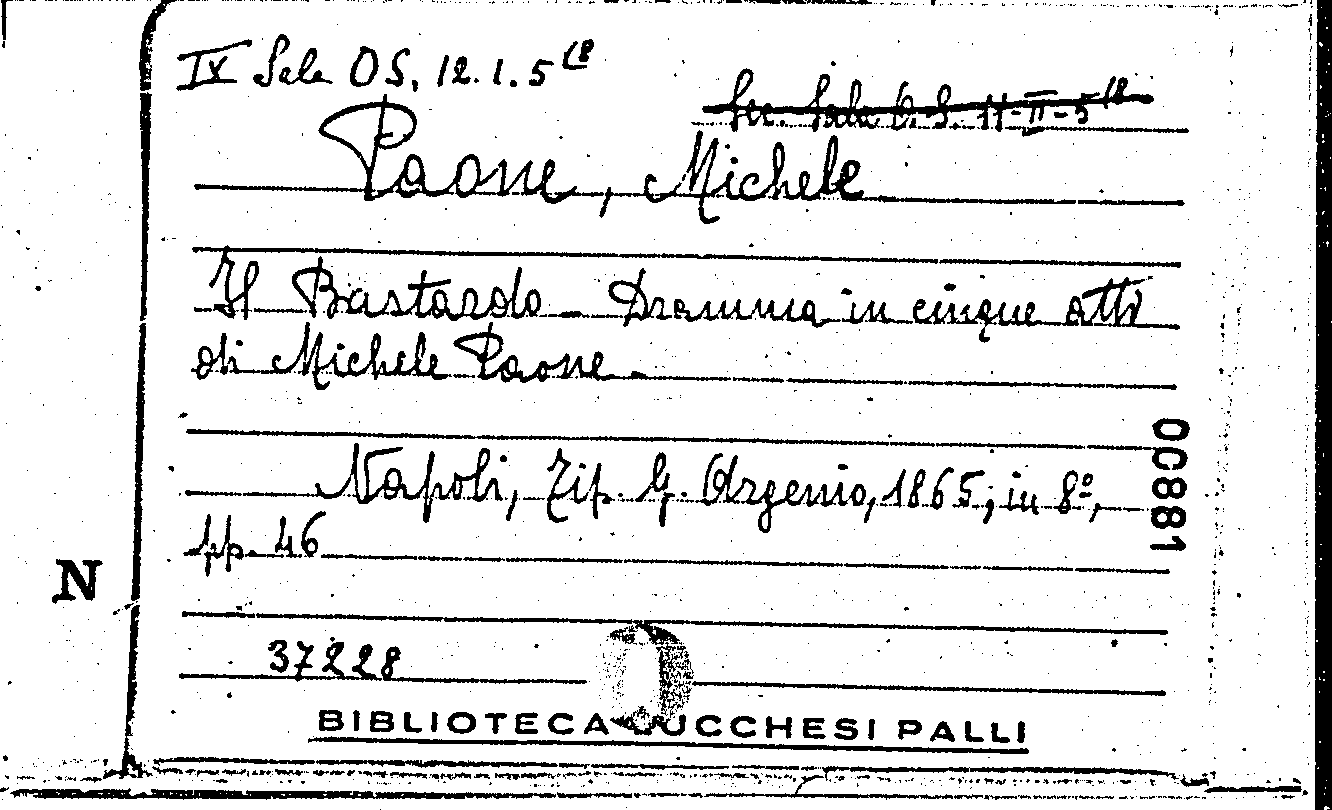 IX Sala OS. 12. 1. 5 (8
Sec. Sala O. S. 11-II-5 (8
Paone, Michele
Il Bastardo - Dramma in cinque atti
di Michele Paone -
Napoli, Tip. G. Argenio, 1865; in 8º,
pp. 46
00881
N
37228
BIBLIOTECA LUCCHESI PALLI